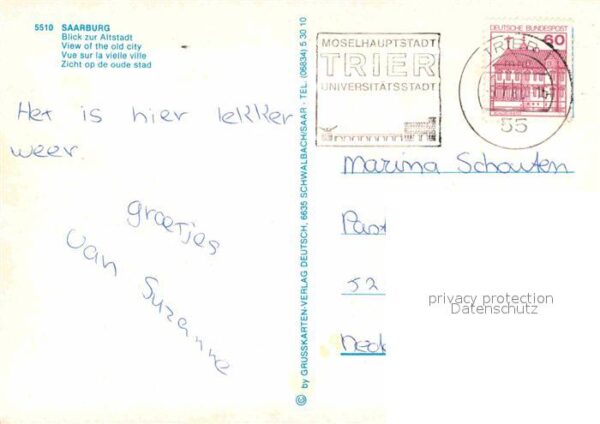 5510 SAARBURG
Blick zur Altstadt
View of the old city
Vue sur la vielle ville
Zicht op de oude stad
Het is hier lekker
weer.
groetjes
van Suzanne
© by GRUSSKARTEN-VERLAG DEUTSCH, 6635 SCHWALBACH/SAAR - TEL. (06834) 5 30 10
MOSELHAUPTSTADT
TRIER
UNIVERSITÄTSSTADT
DEUTSCHE BUNDESPOST
60
TRIER 1
55
Marina Schouten
Past
52
Ned
privacy protection
Datenschutz